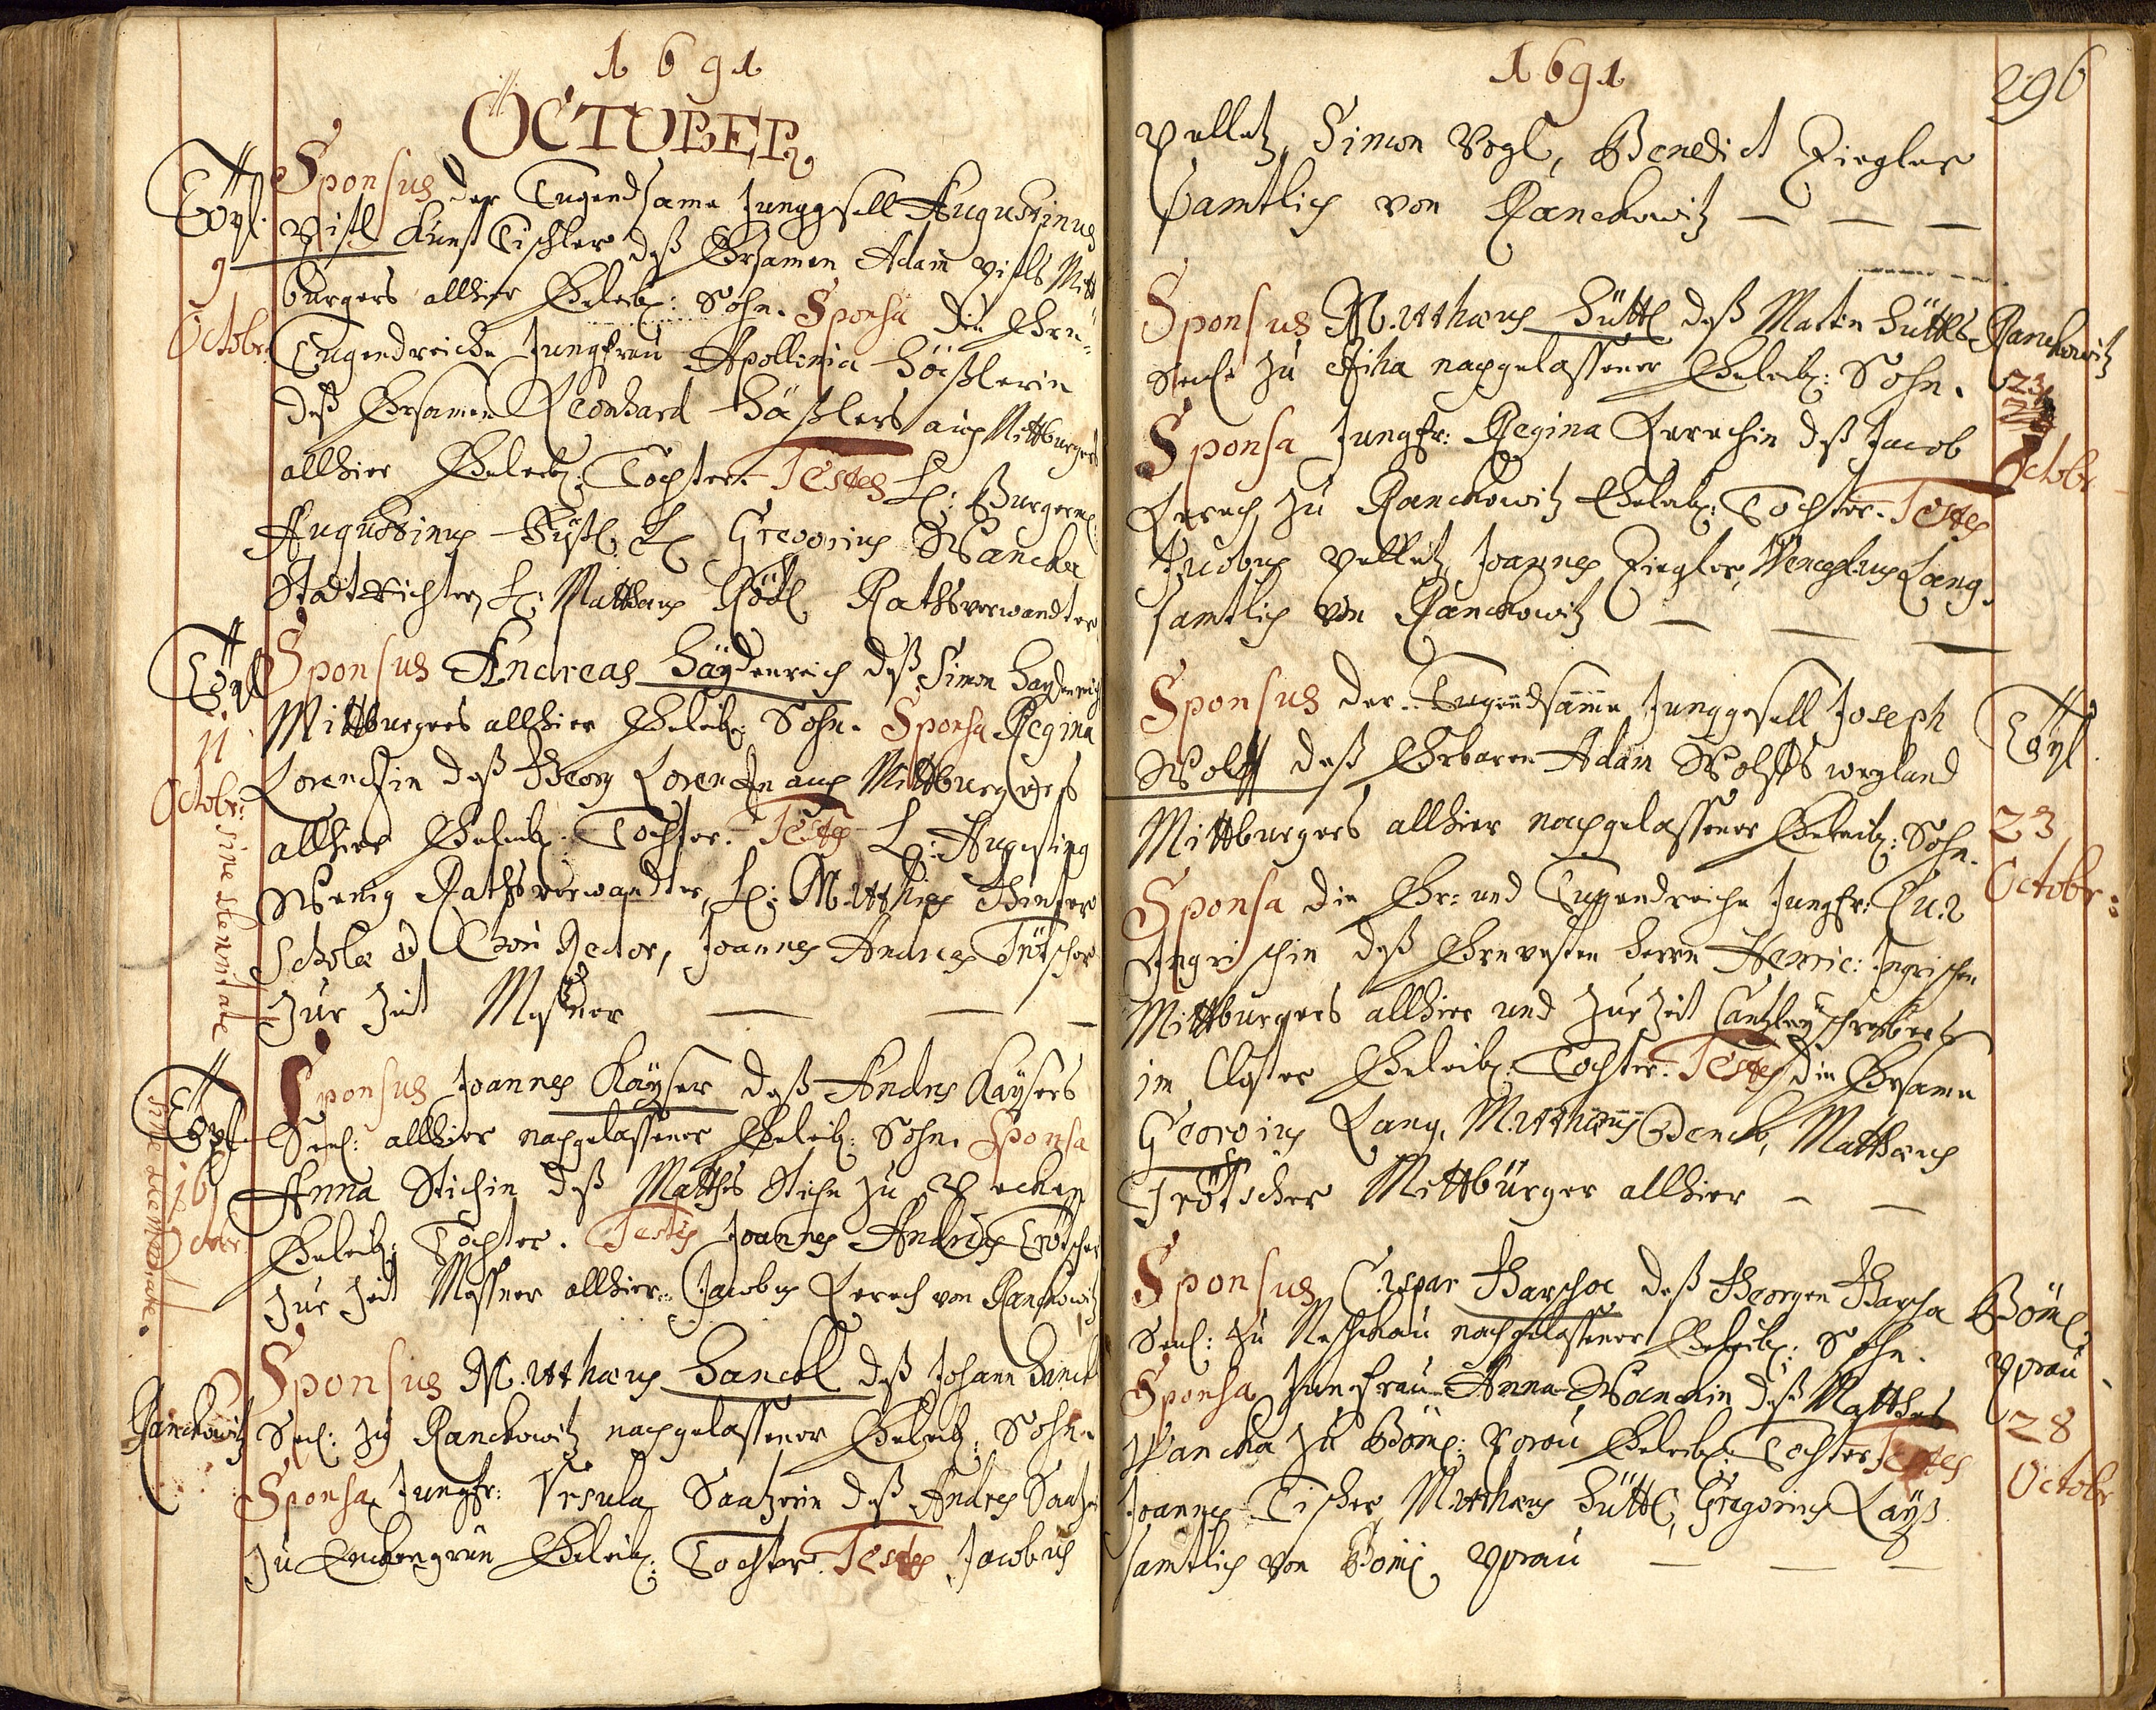 1691
OCTOBER
Töpl. 9 Octobr:
Sponsus der Tugendsame Junggesell Augustinus
Pistl Kunst Tischler deß Ehrsamen Adam Pistls Mitt
burgers allhier Eheleibl: Sohn. Sponsa die Ehrn
Tugendreiche Jungfrau Apollinia Häßlerin
deß Ehrsamen Leonhard Häßlers auch Mittburgers
allhier Eheleibl: Tochter. Testes H: Burgerm:
Augustinus H: Gregorius Wancka
Stadt Richter, H: Matthaeus Rathsverwandter
Töpl 11 Octobr: sine solennitate
Sponsus Andreas Häydenreich deß Simon Haydenreich
Mittburgers allhier Eheleibl: Sohn. Sponsa Regina
Lorentzin deß Georg Lorentzen auch Mittburgers
allhier Eheleibl: Tochter. Testes H: Augustinus
Wenig Rathsverwandter, H: Matthias
Scholae et Chori Rector, Joannes Andreas Trötscher
zur Zeit Meßner
Töpl 16 sine solennitate.
Sponsus Joannes Kayser deß Andres Kaysers
Seel: allhier nachgelassener Eheleibl: Sohn. Sponsa
Anna Stichin deß Matthes Stichn zu
Eheleibl: Tochter. Testes Joannes Andreas Trötscher
zur Zeit Meßner allhier. Jacobus Lerch von Ranckowitz
Ranckowitz
Sponsus Matthaeus Hanckl deß Johann Hanckl
Seel: zu Ranckowitz nachgelassener Eheleibl: Sohn.
Sponsa Jungfr: Ursula Saatzerin deß Andres
zu Eheleibl: Tochter. Testes Jacobus
1691
296
Simon Vogl, Benedict Ziegler
Samtlich von Ranckowitz
Ranckowitz 23 Octobr
Sponsus Matthaeus Hüttl deß Matin Hüttls
Seel: zu nachgelassener Eheleibl: Sohn.
Sponsa Jungfr: Regina Lerchin deß Jacob
Lerch zu Ranckowitz Eheleibl: Tochter. Testes
Jacobus Joannes Ziegler, Wenceslaus Lang.
samtlich von Ranckowitz
Töpl. 23 Octobr:
Sponsus der Tugendsame Junggesell Joseph
Wolff deß Ehrbaren Adam Wolffs weyland
Mittburgers allhier nachgelassener Eheleibl: Sohn.
Sponsa die Ehr: und Tugendreiche Jungfr: Eva
Ingrischin deß Ehrnvesten Herrn Henric: Ingrischen
Mittburgers allhier und zur Zeit Cantzleyschreibers
im Closter Eheleibl: Tochter. Testes die Ehrsame
Georgius Lang, Matthaeus Denck, Matthaeus
Trötscher Mittbürger allhier
Böml. 28 Octobr
Sponsus Caspar Barscha deß Georgen Barscha
Seel: zu nachgelassener Eheleibl: Sohn.
Sponsa Jungfrau Anna Wanckin deß Matthes
Wancka zu Böml: Eheleibl: Tochter Testes
Joannes Tischer, Matthaeus Hüttl, Gregorius Layß
samtlich von Böml